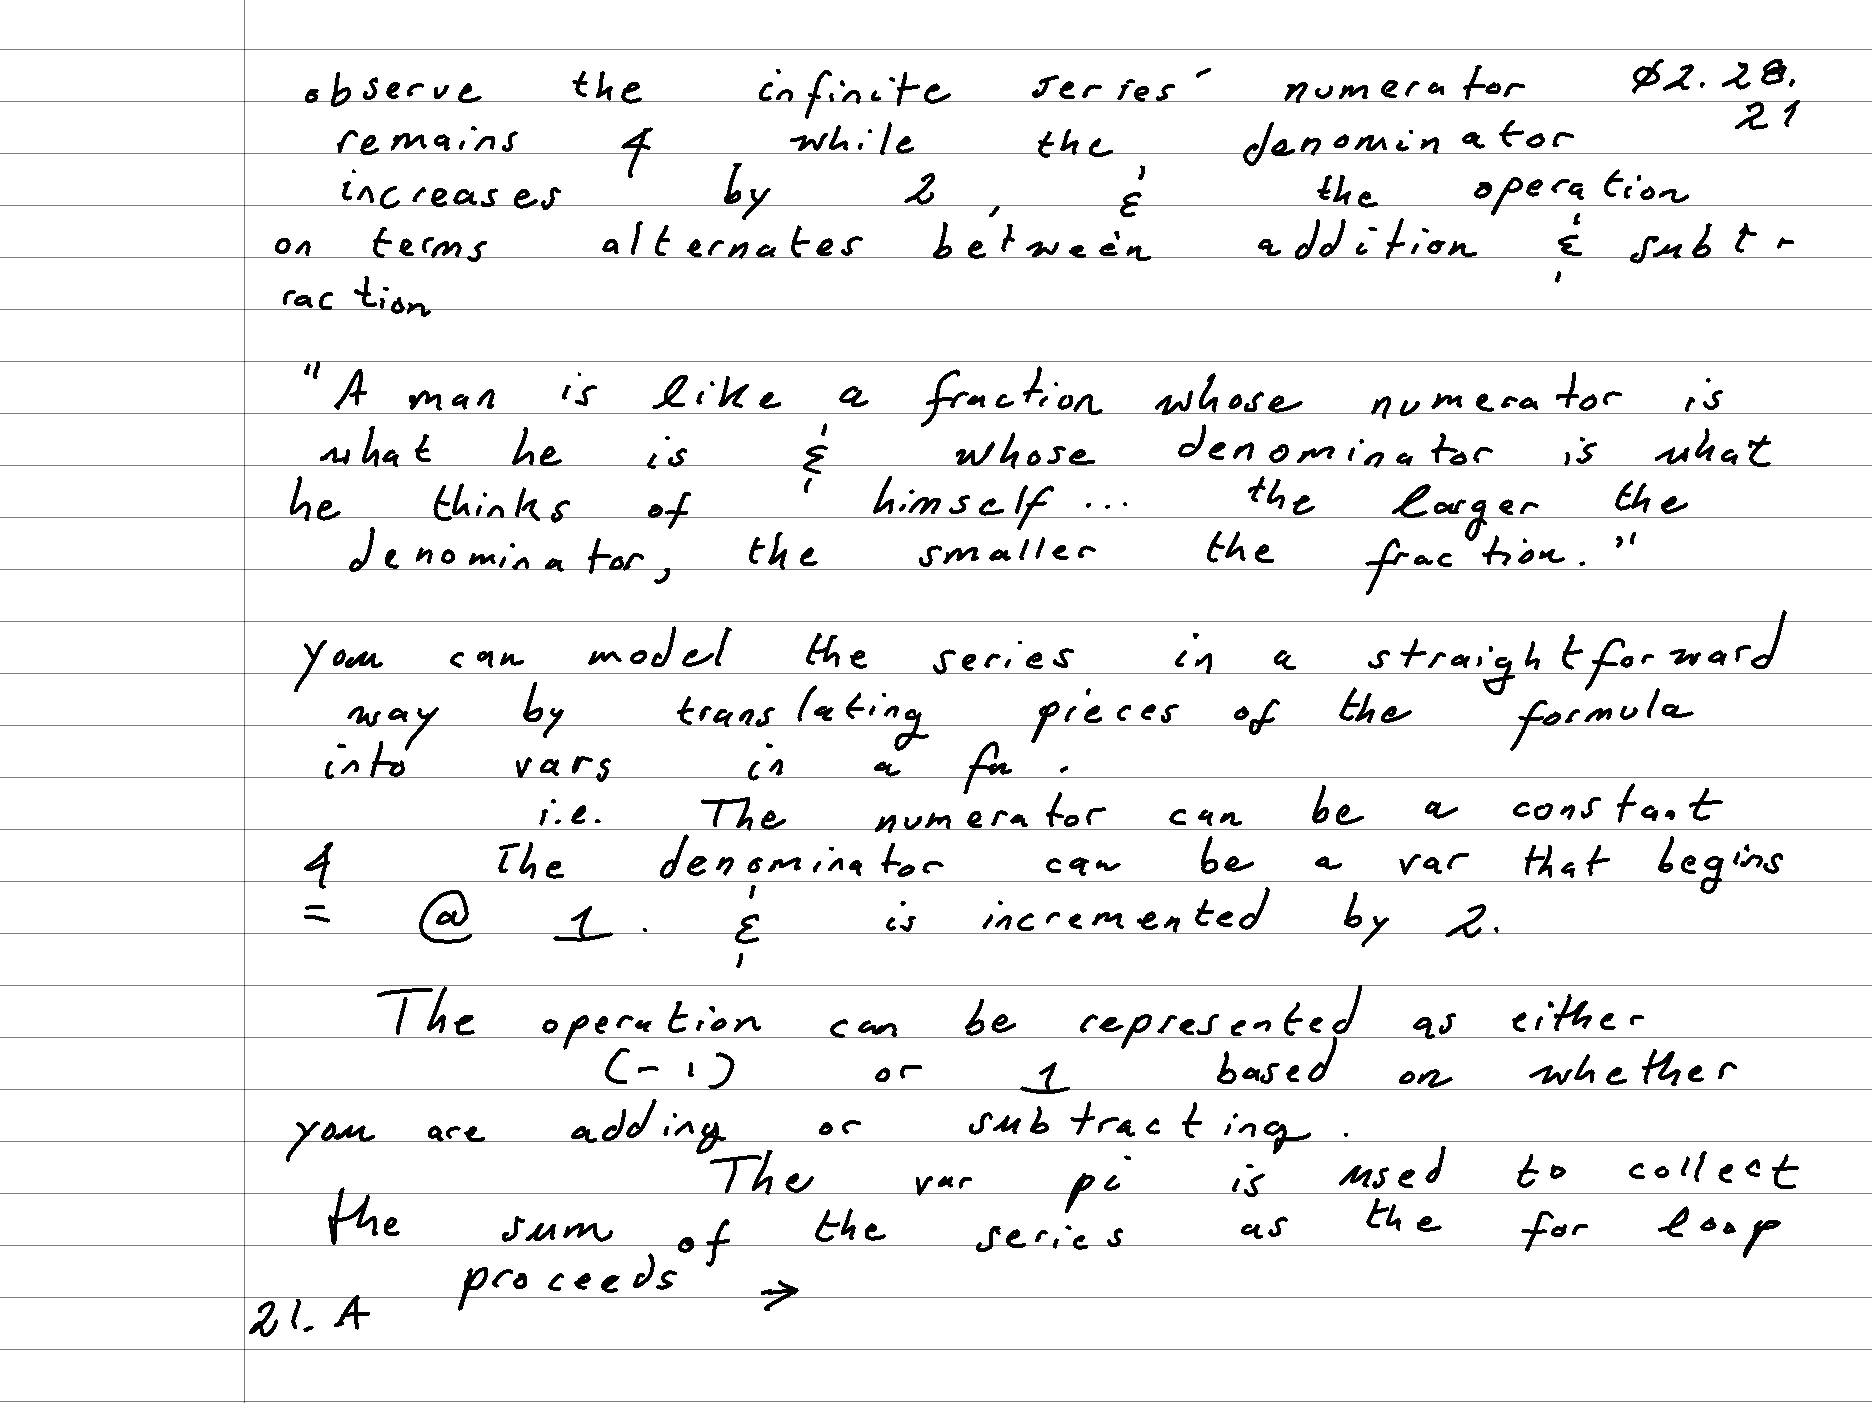 observe the infinite series' numerator ø2.28.
21
remains 4 while the denominator
increases by 2, & the operation
on terms alternates between addition & subt-
raction
"A man is like a fraction whose numerator is
what he is & whose denominator is what
he thinks of himself... the larger the
denominator, the smaller the fraction."
you can model the series in a straightforward
way by translating pieces of the formula
into vars in a fn.
i.e. The numerator can be a constant
4 The denominator can be a var that begins
= @ 1. & is incremented by 2.
The operation can be represented as either
(-1) or 1 based on whether
you are adding or subtracting.
The var pi is used to collect
the sum of the series as the for loop
proceeds →
21. A